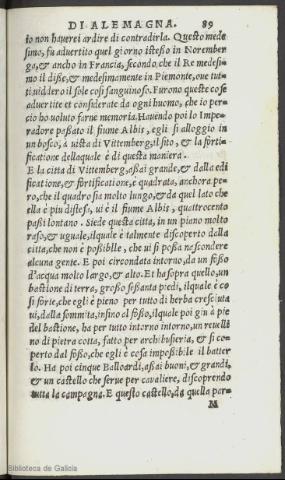 DI ALEMAGNA. 89
io non hauerei ardire di contradirla. Questo mede
simo, fu aduertito quel giorno istesso in Norember
ga, & ancho in Francia, secondo, che il Re medesi-
mo il disse, & medesimamente in Piemonte, oue tut-
ti uidder o il sole cosi sanguinoso. Furono queste cose
aduertite et considerate da ogni huomo, che io per-
cio ho uoluto farne memoria. Hauendo poi lo Impe-
radore passato il fiume Albis, egli si alloggio in
un bosco, à uista di Vittemberg, il sito, & la forti-
ficatione dellaquale è di questa maniera.
E la citta di Vittemberg, assai grande, & dalla edi
ficatione, & fortificatione, è quadrata, anchora pe-
ro, che il quadro sia molto lungo, & da quel lato che
ella è piu distesa, ui è il fiume Albis, quattrocento
passi lontano. Siede questa citta, in un piano molto
raso, & uguale, ilquale è talmente discoperto dalla
citta, che non è possibile, che ui si possa nascondere
alcuna gente. E poi circondata intorno, da un fosso
d'acqua molto largo, & alto. Et ha sopra quello, un
bastione di terra, grosso sessanta piedi, ilquale è co
si forte, che egli è pieno per tutto di herba cresciuta
ui, dalla sommita, insino al fosso, ilquale poi giu à pie
del bastione, ha per tutto intorno intorno, un reuelli
no di pietra cotta, fatto per archibuseria, & si co-
perto dal fosso, che egli è cosa impossibile il batter
lo. Ha poi cinque Balloardi, assai buoni, & grandi,
& un castello che serue per caualiere, discoprendo
tutta la campagna. E questo castello, da quella par-
M
Biblioteca de Galicia